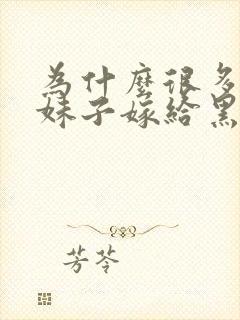 為什麼很多
妹子嫁給黑
芳苓